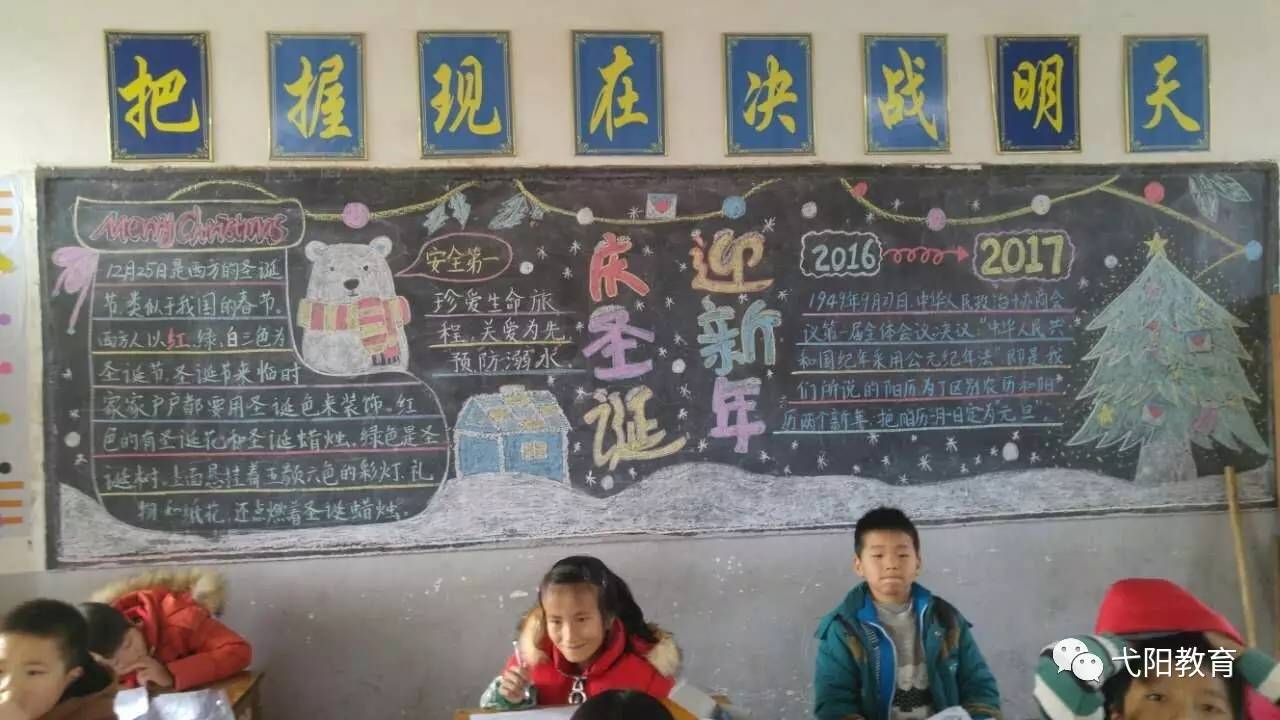 把握现在决战明天
Merry Christmas
12月25日是西方的圣诞
节.类似于我国的春节.
西方人以红.绿.白三色为
圣诞节.圣诞节来临时
家家户户都要用圣诞色来装饰.红
色的有圣诞花和圣诞蜡烛.绿色是圣
诞树.上面悬挂着五颜六色的彩灯.礼
物和纸花.还点燃着圣诞蜡烛.
安全第一
珍爱生命旅
程.关爱为先
预防溺水.
庆圣诞
迎新年
2016
2017
1949年9月27日.中华人民政治协商会
议第一届全体会议决议."中华人民共
和国纪年采用公元纪年法"即是我
们所说的阳历为了区别农历和阳
历两个新年.把阳历1月1日定为"元旦".
弋阳教育